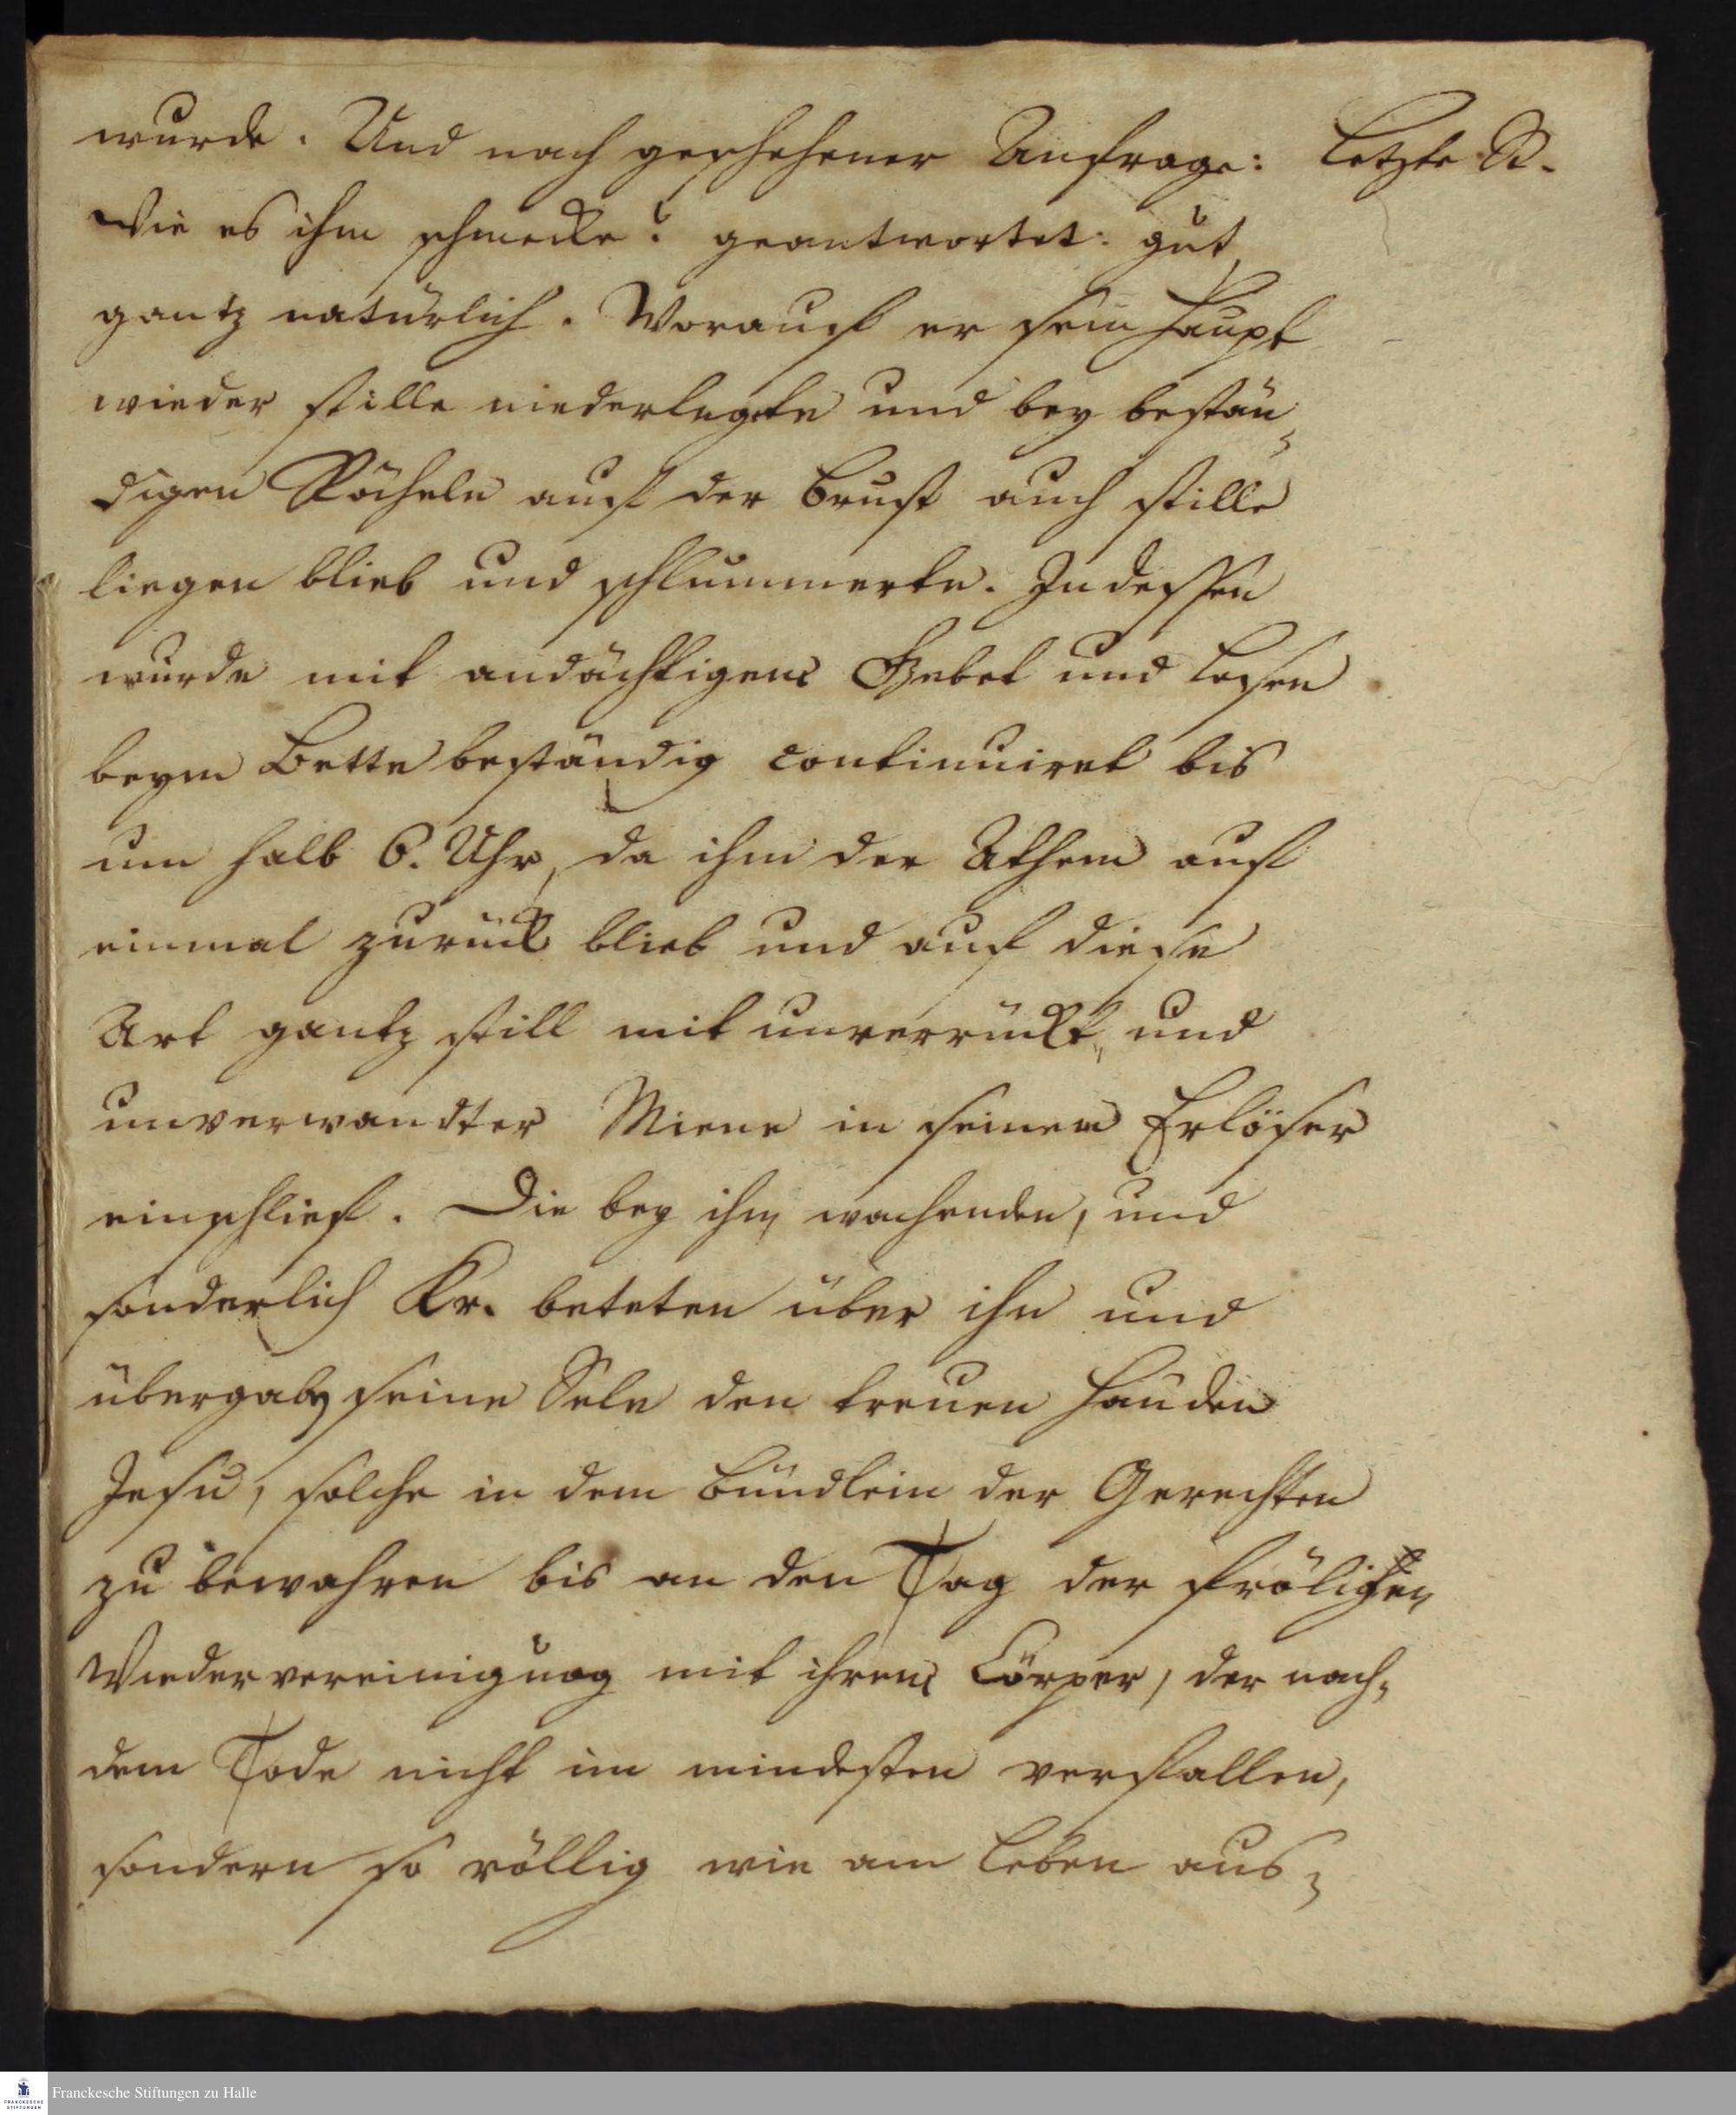 wurde. Und nach geschehener Anfrage: Letzte St.
Wie es ihm schmecke? geantwortet: gut,
gantz natürlich. Worauf er sein Haupt
wieder stille niederlegte und bey bestän-
digen Röcheln auf der Brust auch stille
liegen blieb und schlummerte. Indessen
wurde mit andächtigem Gebet und Lesen
beym Bette beständig continuiret bis
um halb 6. Uhr, da ihm der Athem auf
einmal zurück blieb und auf diese
Art gantz still mit unverrückt- und
unverwandter Miene in seinem Erlöser
einschlief. Die bey ihm wachenden, und
sonderlich Kr. beteten über ihn und
übergaben seine Sele den treuen Händen
Jesu, solche in dem Bündlein der Gerechten
zu bewahren bis an den Tag der frölichen
Wiedervereinigung mit ihrem Cörper, der nach-
dem Tode nicht im mindesten verfallen,
sondern so völlig wie am Leben aus-
Franckesche Stiftungen zu Halle
FRANCKESCHE
STIFTUNGEN